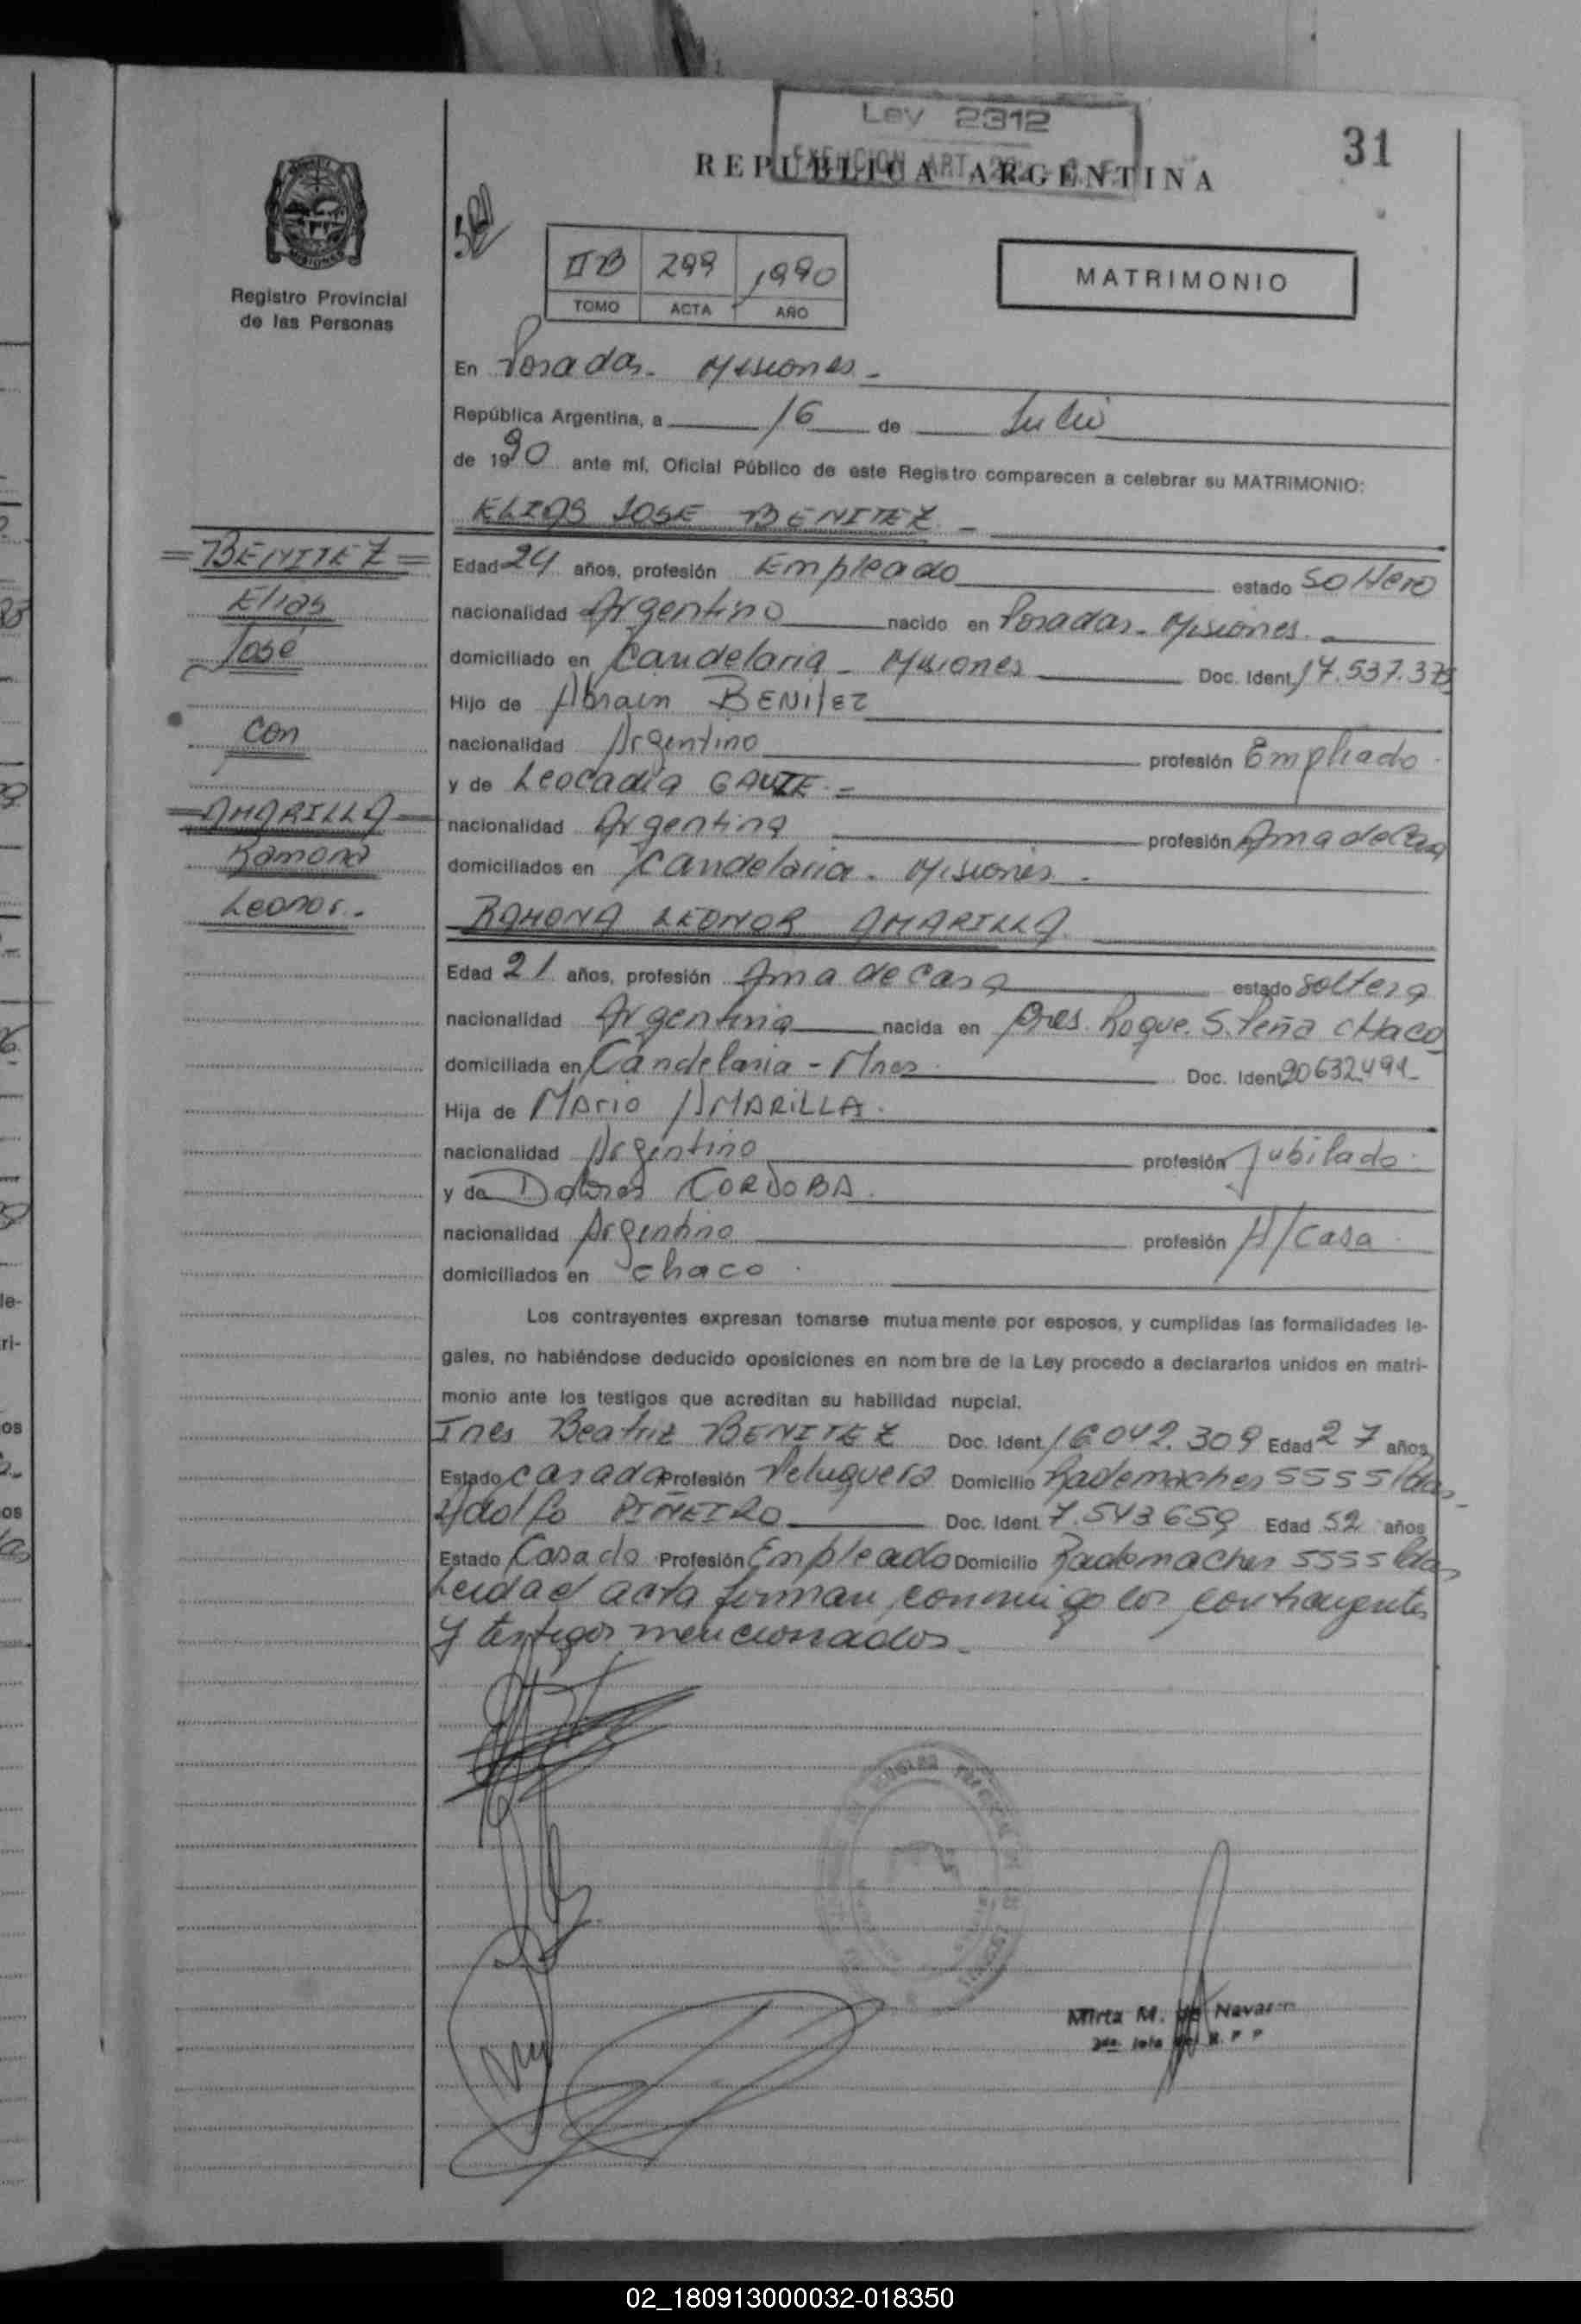 Ley 2312
31
REPUBLICA ARGENTINA
Registro Provincial
de las Personas
II B 299 1990
TOMO ACTA AÑO
MATRIMONIO
En Posadas - Misiones -
República Argentina, a 16 de Julio
de 1990 ante mí, Oficial Público de este Registro comparecen a celebrar su MATRIMONIO:
ELIAS JOSE BENITEZ -
=BENITEZ=
Elias
José
con
=AMARILLA=
Ramona
Leonor.-
Edad 24 años, profesión Empleado estado Soltero
nacionalidad Argentino nacido en Posadas - Misiones -
domiciliado en Candelaria - Misiones Doc. Ident. 17.537.375
Hijo de Abrain BENitEZ
nacionalidad Argentino profesión Empleado.
y de Leocadia GAUTE.=
nacionalidad Argentina profesión Ama de Casa
domiciliados en Candelaria - Misiones -
RAMONA LEONOR AMARILLA.
Edad 21 años, profesión Ama de casa estado Soltera
nacionalidad Argentina nacida en Pres. Roque. S. Peña CHaco
domiciliada en Candelaria - Mnes Doc. Ident. 20632491-
Hija de MARIO AMARiLLA.
nacionalidad Argentino profesión Jubilado.
y de Dolores CORDOBA.
nacionalidad Argentino profesión A/Casa.
domiciliados en chaco.
Los contrayentes expresan tomarse mutuamente por esposos, y cumplidas las formalidades le-
gales, no habiéndose deducido oposiciones en nombre de la Ley procedo a declararlos unidos en matri-
monio ante los testigos que acreditan su habilidad nupcial.
Ines Beatriz BENITEZ Doc. Ident. 16.042.309 Edad 27 años
Estado casada Profesión Peluquera Domicilio Rademacher 5555 Pdas-
Adolfo PIÑEIRO Doc. Ident. 7.543659 Edad 52 años
Estado Casado Profesión Empleado Domicilio Rademacher 5555 Pdas
Leida el acta firman conmigo los contrayentes
y testigos mencionados -
Mirta M. de Navarro
02_180913000032-018350